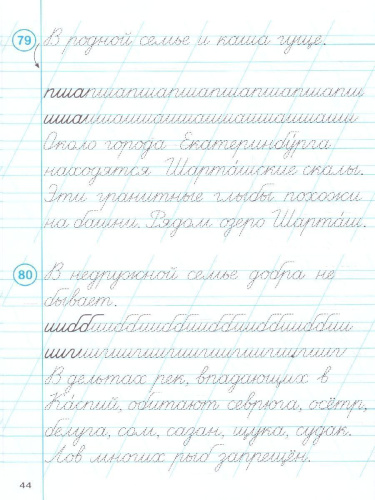 79 В родной семье и каша гуще.
пшапшапшапшапшапшапшапши
шшашшашшашшашшашшашши
Около города Екатеринбу́рга
находятся Шарта́шские скалы.
Эти гранитные глыбы похожи
на башни. Рядом озеро Шарта́ш.
80 В недружной семье добра не
бывает.
В дельтах рек, впадающих в
Ка́спий, обитают севрюга, осётр,
белуга, сом, сазан, щука, судак.
Лов многих рыб запрещён.
44